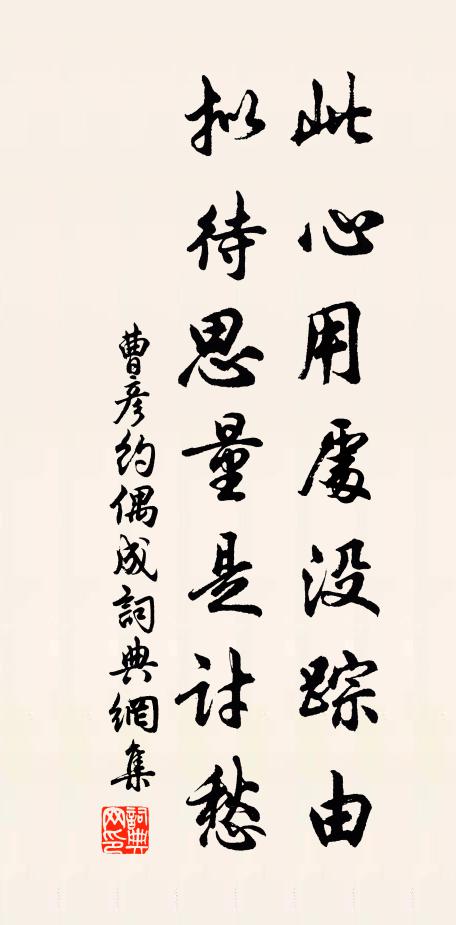 此心用處没踪由
拟待思量是討愁
曹彥約偶成詞典網集
詞典网印